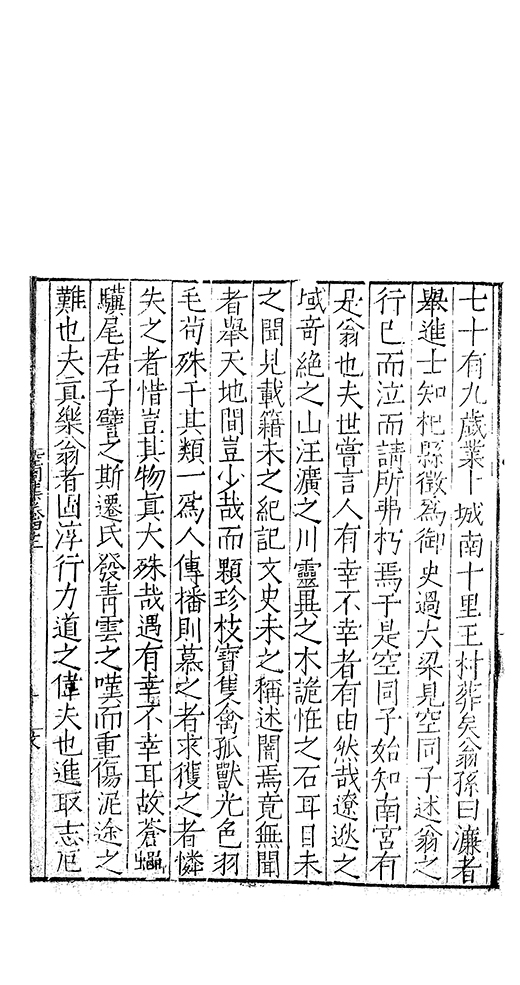 七十有九歲業卜城南十里王村葬矣翁孫曰濂者
舉進士知杞縣徵為御史過大梁見空同子述翁之
行已而泣而請所弗朽焉于是空同子始知南宮有
是翁也夫世嘗言人有幸不幸者有由然哉遼逖之
域奇絕之山汪濊之川靈異之木詭恠之石耳目未
之聞見載籍未之紀記文史未之稱述闇焉竟無聞
者舉天地間豈少哉而顆珍枝寶隻禽孤獸光色羽
毛茍殊于其類一為人傳播則慕之者求獲之者憐
失之者惜豈其物真大殊哉遇有幸不幸耳故蒼蠅
驥尾君子譬之斯遷氏發青雲之嘆而重傷泥途之
難也夫真樂翁者固淳行力道之偉夫也進取志厄